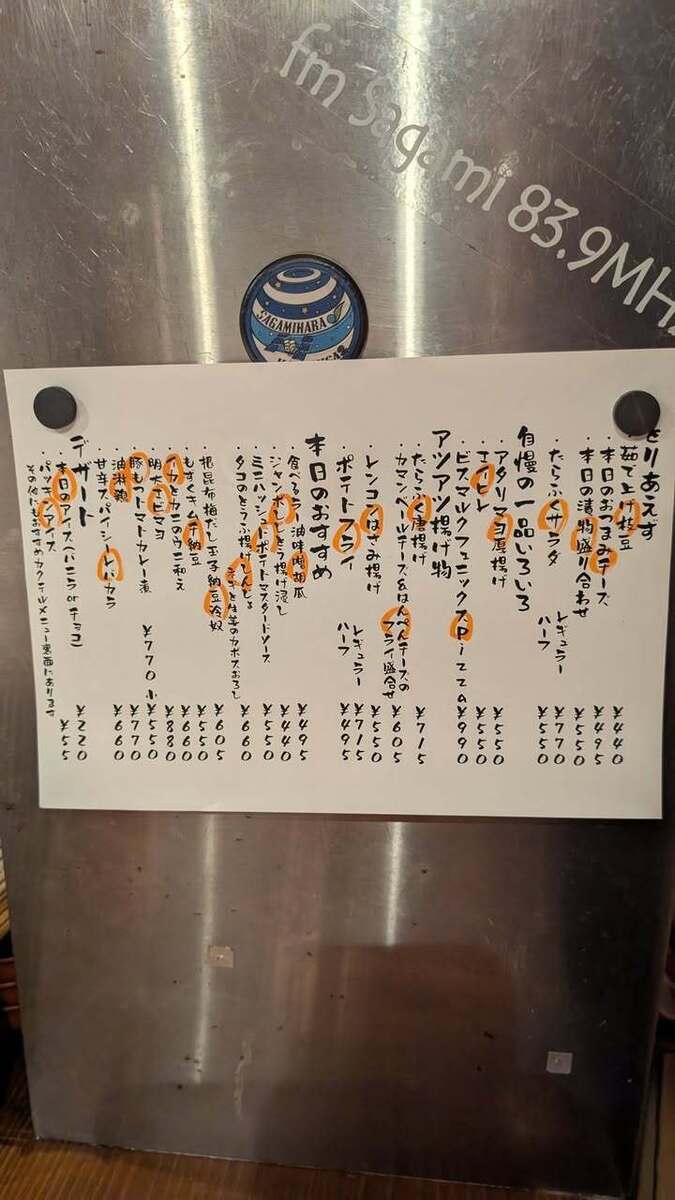 fm Sagami 83.9MHz
SAGAMIHARA
とりあえず
・茹で上げ枝豆 ¥440
・本日のおつまみチーズ ¥495
・本日の漬物盛り合わせ ¥550
自慢の一品いろいろ
・たらふくサラダ レギュラー ¥770
ハーフ ¥550
・アタリマヨ厚揚げ ¥550
・エイヒレ ¥550
・ビスマルクフェニックスPizza ¥990
アツアツ揚げ物
・たらふく唐揚げ ¥715
・カマンベールチーズ&はんぺんチーズの
フライ盛合せ ¥605
・レンコンはさみ揚げ ¥550
・ポテトフライ レギュラー ¥715
ハーフ ¥495
本日のおすすめ
・食べるラー油味噌胡瓜 ¥495
・ジャンボしどうふ揚げ浸し ¥440
・ミニハッシュドポテトマスタードソース ¥550
・タコのとうふ揚げ ¥660
・根昆布梅だし玉子納豆冷奴 ¥605
・もずくキムチ納豆 ¥550
・イカとカニのウニ和え ¥660
・明太エビマヨ ¥880
・豚もつトマトカレー煮 ¥770 小¥550
・油淋鶏 ¥770
・甘辛スパイシーレバカラ ¥660
デザート
・本日のアイス(バニラorチョコ) ¥220
・パッキンアイス ¥55
その他にもおすすめカクテルメニュー裏面にあります